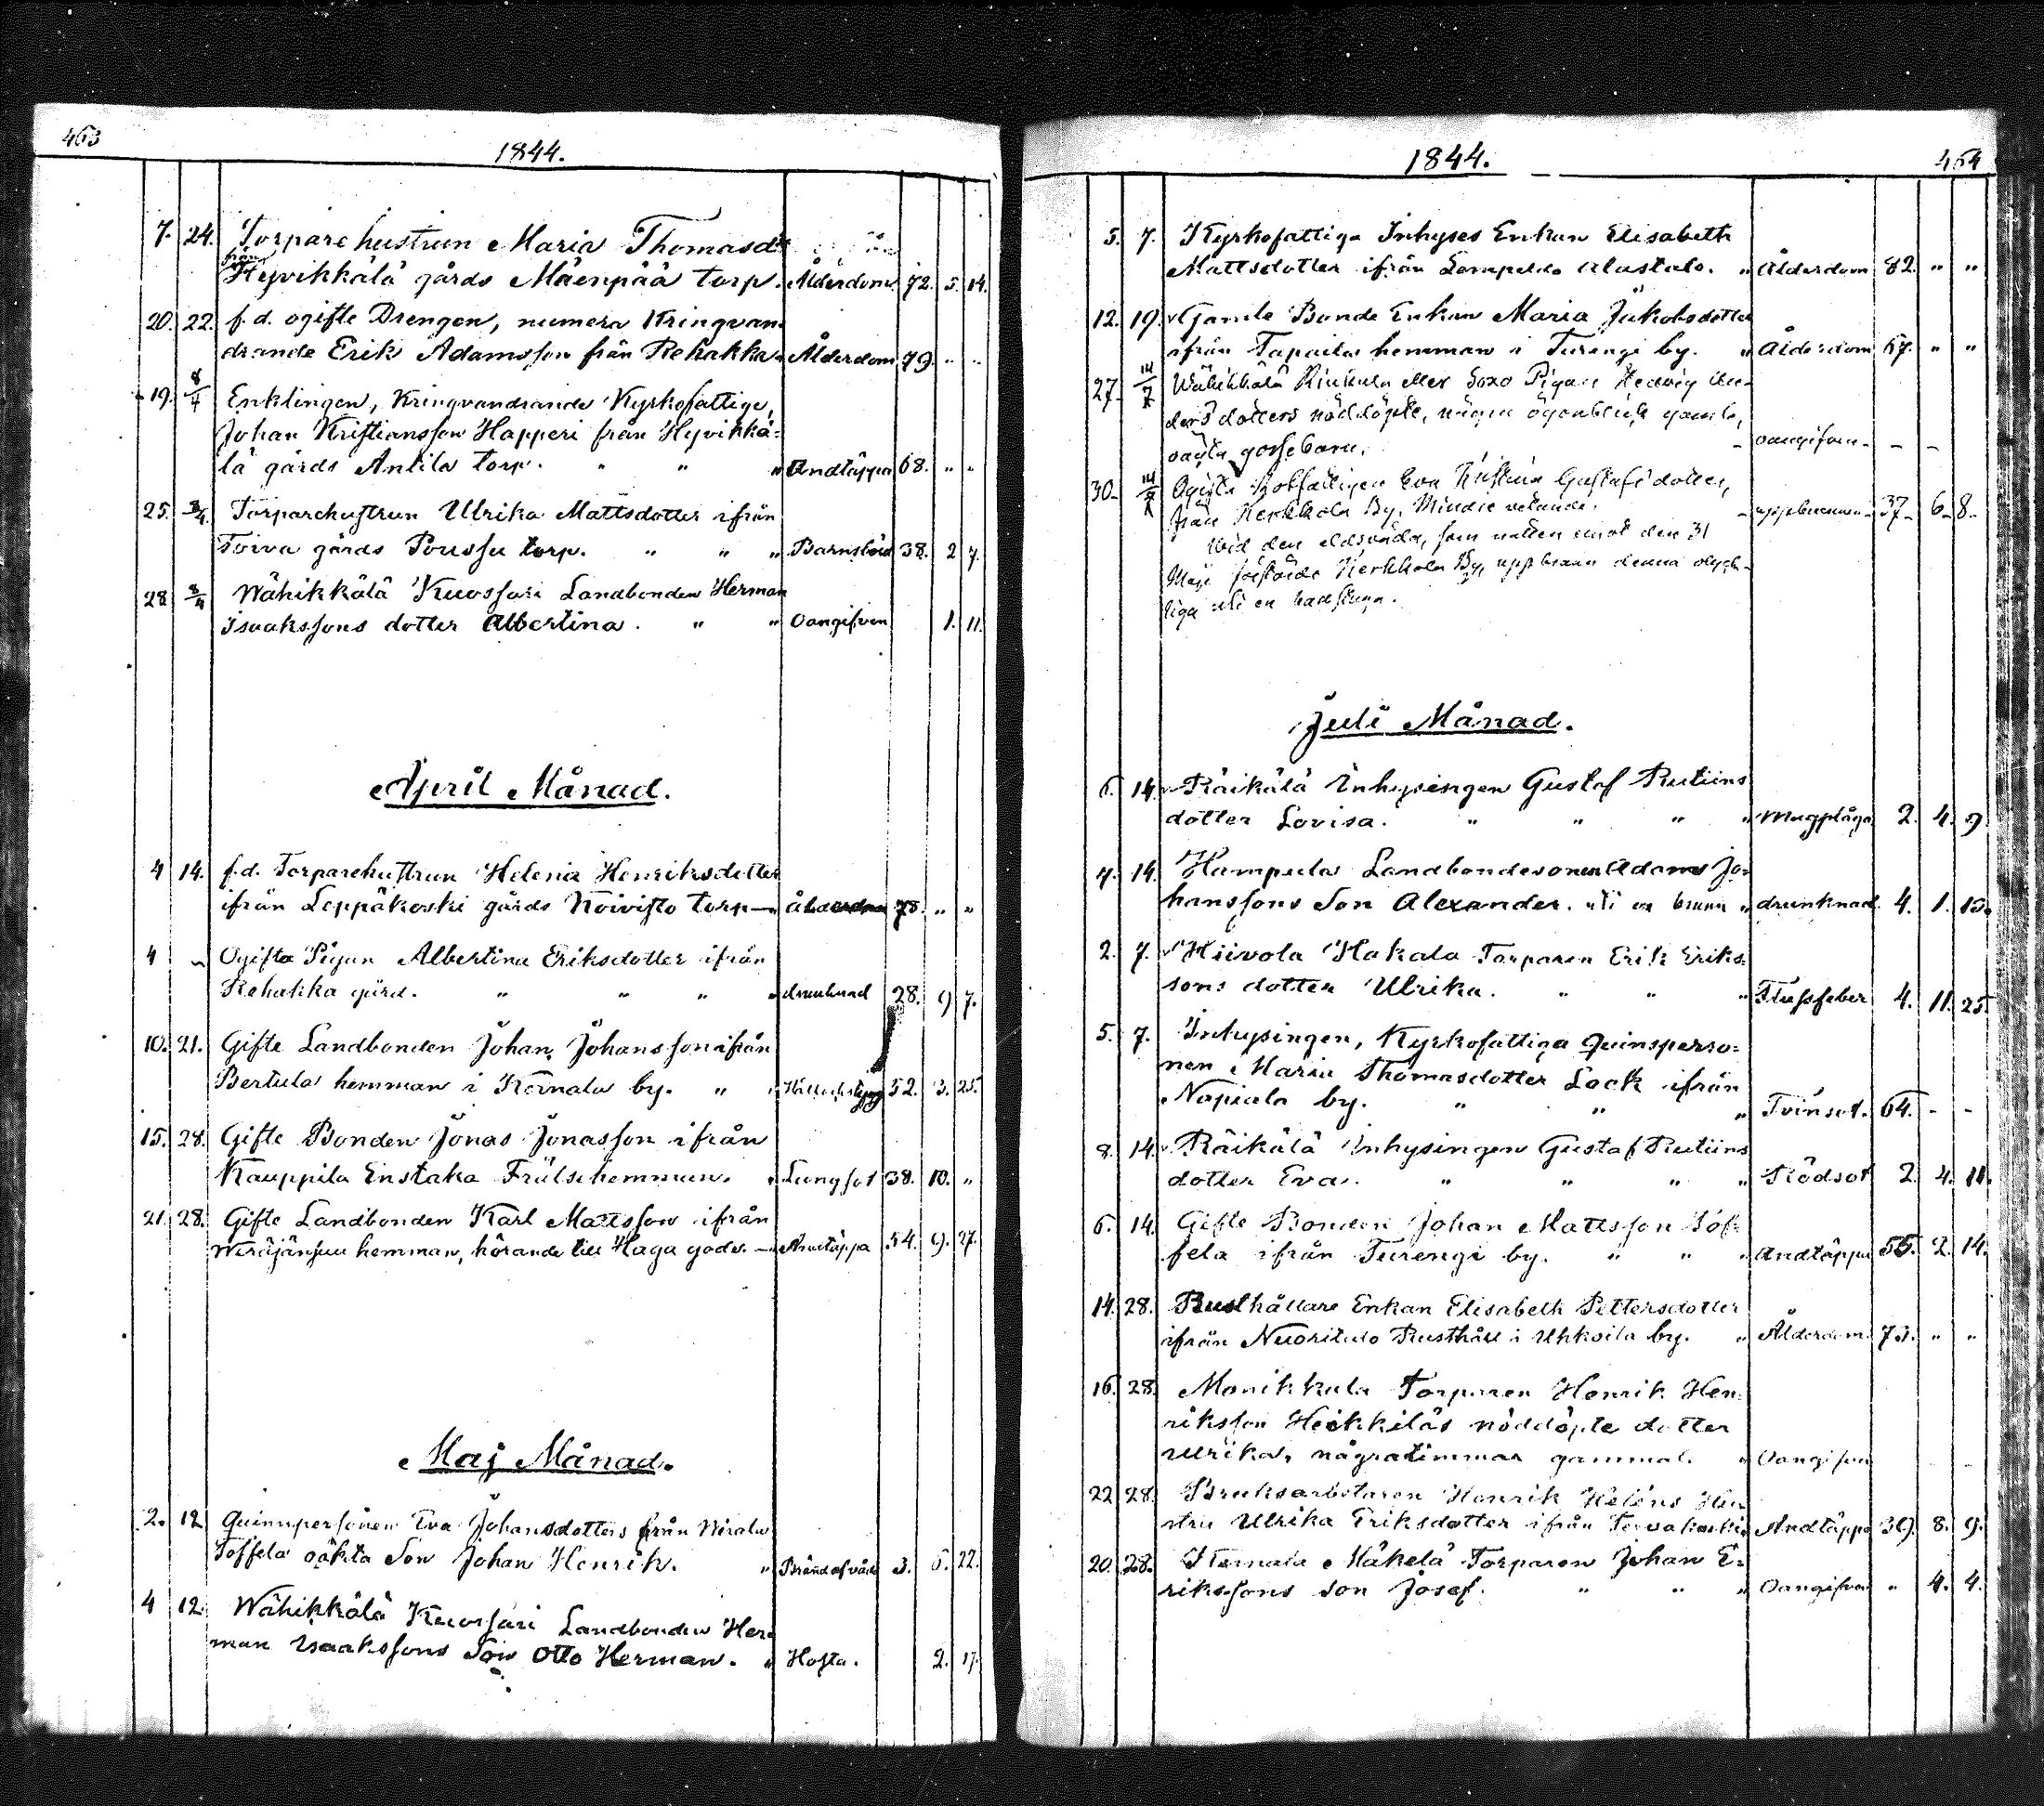 463
1844.
7. 24. Torpare hustrun Maria Thomasdr
från
Hyvikkälä gårds Mäenpää torp. Ålderdom. 72. 5. 14.
20. 22. f. d. ogifte Drengen, numera Kringvan-
drande Erik Adamsson från Rehakka " Ålderdom 79. " "
19. 8/4 Enklingen, Kringvandrande Kyrkofattige,
Johan Kristiansson Happeri från Hyvikkä=
lä gårds Antila torp. " " " Andtäppa 68. " "
25. 3/4. Torparehustrun Ulrika Mattsdotter ifrån
Toiva gårds Poussu torp. " " " Barnsbörd 38. 2 7.
28 3/4 Wähikkälä Kuossari Landbonden Herman
Isaakssons dotter Albertina. " " Oangifven 1. 11.
April Månad.
4 14. f.d. Torparehustrun Helena Henriksdotter
ifrån Leppäkoski gårds Koivisto torp — " Ålderdom 78. " "
4 " Ogifta Pigan Albertina Eriksdotter ifrån
Rehakka gård. " " " " drunknad 28. 9 7.
10. 21. Gifte Landbonden Johan Johansson ifrån
Bertula hemman i Kernala by. " " 52. 3. 25.
15. 28. Gifte Bonden Jonas Jonasson ifrån
Kauppila Enstaka Frälsehemman. " Lungsot 38. 10. "
21. 28. Gifte Landbonden Karl Mattsson ifrån
hemman, hörande till Haga gods. — Andtäppa 54. 9. 27.
Maj Månad.
2. 12 Quinnpersonen Eva Johansdotters från
Toffela oäkta Son Johan Henrik. " 3. 6. 22.
4 12. Wähikkälä Kuossari Landbonden Her=
man Isaakssons Son Otto Herman. " Hosta. 2. 17.
1844.
464
5. 7. Kyrkofattiga Inhyses Enkan Elisabeth
Mattsdotter ifrån Lempeldo Alastalo. " Ålderdom 82. " "
12. 19. Gamle Bonde Enkan Maria Jakobsdotter
ifrån Tapaila hemman i Turengi by. " Ålderdom 67. " "
27. 14/7 Wähikkälä Rinkula eller Soxo Pigan Hedvig An-
dersdotters nöddöpte, några ögonblick gamla,
oäkta gossebarn. - oangifven - - -
30. 14/7 Ogifta Rotfattigen Eva Kristina Gustafsdotter,
från Kerkkola By, Mindre vetande. - uppbrunnen - 37 - 6 - 8 -
Wid den eldsvåda, som natten emot den 31
Maji förstörde Kerkkola By, uppbrann denna olyck-
liga uti en badstuga.
Juli Månad.
6. 14. Räikälä Inhysingen Gustaf Rutiins
dotter Lovisa. " " " " Magplåga 2. 4. 9
4. 14. Hampula Landbondesonen Adam Jo-
hanssons Son Alexander. uti en brunn " drunknad. 4. 1. 15.
2. 7. Hiivola Hakala Torparen Erik Eriks-
sons dotter Ulrika. " " " Flussfeber 4. 11. 25.
5. 7. Inhysingen, Kyrkofattiga Quinsperso=
nen Maria Thomasdotter Lock ifrån
Napiala by. " " " Tvinsot. 64. - -
8. 14. Räikälä Inhysingen Gustaf Rutiins
dotter Eva. " " " " Rödsot 2. 4. 11.
6. 14. Gifte Bonden Johan Mattsson Tof-
fela ifrån Turengi by. " " " Andtäppa 55. 2. 14.
14. 28. Rusthållare Enkan Elisabeth Pettersdotter
ifrån Nuoritalo Rusthåll i Uhkoila by. " Ålderdom. 73. " "
16. 28. Monikkala Torparen Henrik Hen-
riksson Heikkiläs nöddöpte dotter
Ulrika, några timmar gammal. " Oangifven
22 28. Bruksarbetaren Henrik Heléns Hu-
stru Ulrika Eriksdotter ifrån " Andtäppa 39. 8. 9.
20. 28. Kernala Mäkelä Torparen Johan E=
rikssons son Josef. " " " Oangifven " 4. 4.